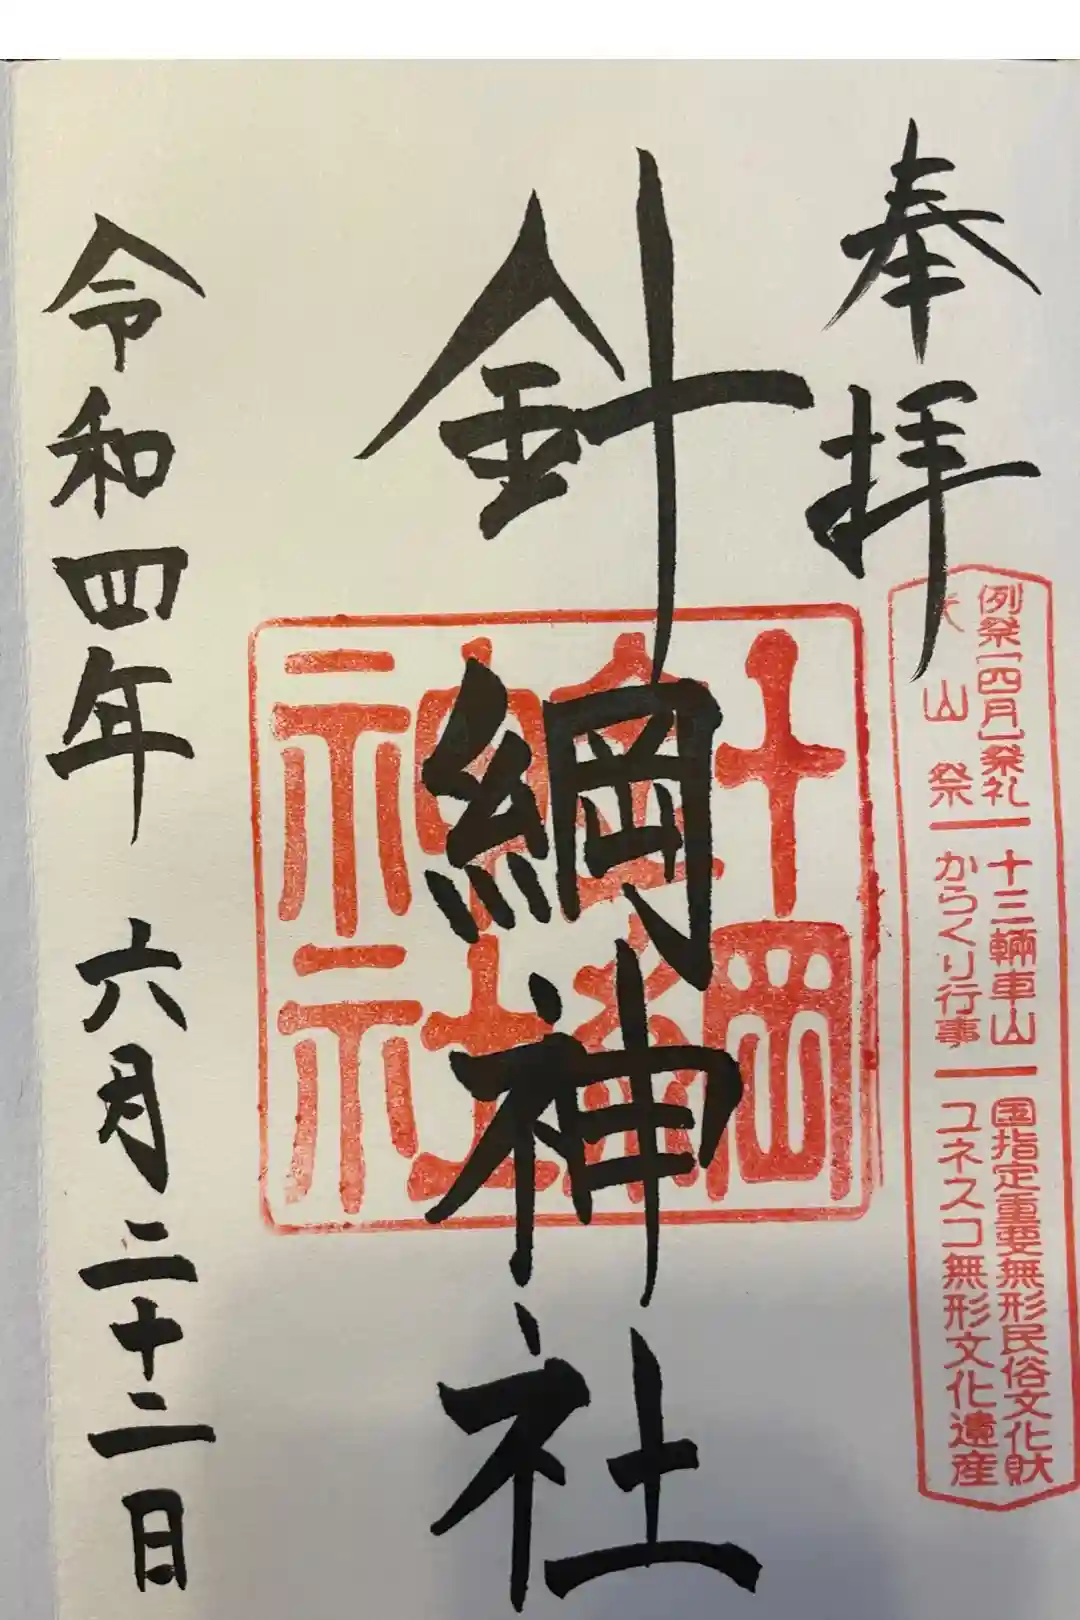 奉拝
例祭(四月)祭礼 十三輛車山 国指定重要無形民俗文化財
犬山祭 からくり行事 ユネスコ無形文化遺産
針綱神社
針綱
神社
令和四年 六月二十二日